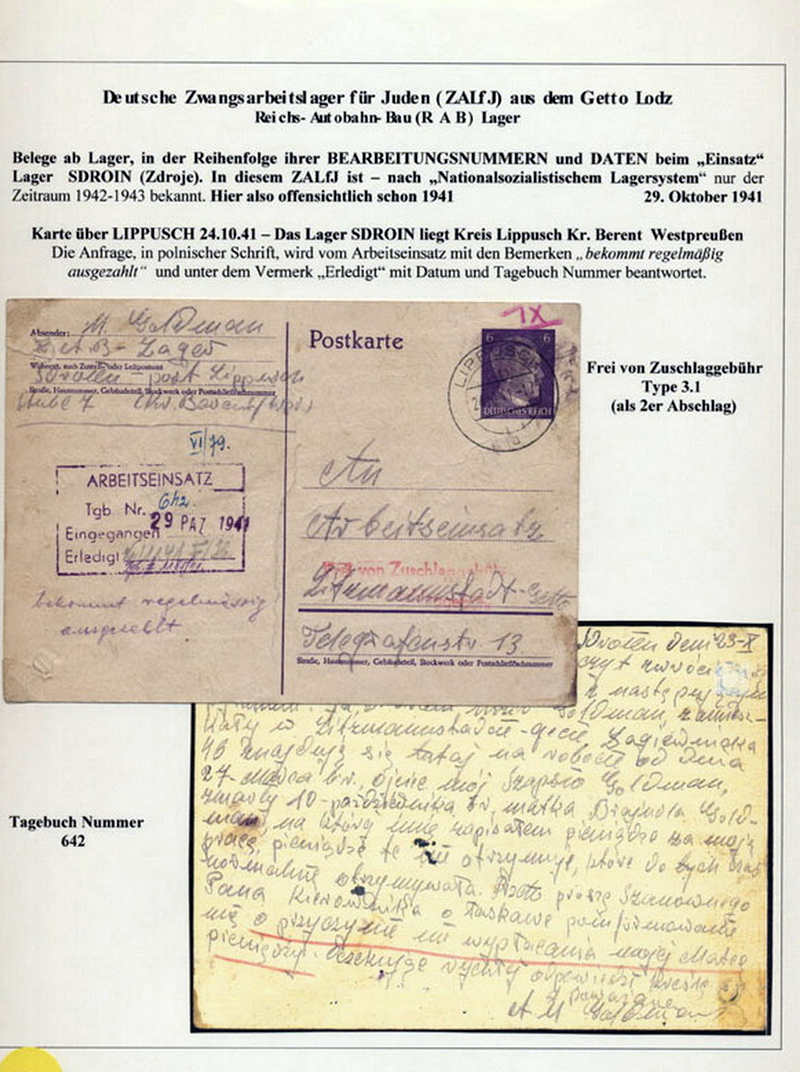 Deutsche Zwangsarbeitslager für Juden (ZALfJ) aus dem Getto Lodz
Reichs-Autobahn-Bau (R A B) Lager
Belege ab Lager, in der Reihenfolge ihrer BEARBEITUNGSNUMMERN und DATEN beim „Einsatz“
Lager SDROIN (Zdroje). In diesem ZALfJ ist – nach „Nationalsozialistischem Lagersystem“ nur der
Zeitraum 1942-1943 bekannt. Hier also offensichtlich schon 1941 29. Oktober 1941
Karte über LIPPUSCH 24.10.41 – Das Lager SDROIN liegt Kreis Lippusch Kr. Berent Westpreußen
Die Anfrage, in polnischer Schrift, wird vom Arbeitseinsatz mit den Bemerken „bekommt regelmäßig
ausgezahlt“ und unter dem Vermerk „Erledigt“ mit Datum und Tagebuch Nummer beantwortet.
Absender: M. Goldman
Lager
Wohnort, auch Zustell- oder Leitpostamt
post Lippusch
Straße, Hausnummer, Gebäudeteil, Stockwerk oder Postschließfachnummer
Stube 7
Postkarte
1X
6 6
DEUTSCHES REICH
LIPPUSCH
Frei von Zuschlaggebühr
Type 3.1
(als 2er Abschlag)
VI/79.
ARBEITSEINSATZ
Tgb. Nr. 642.
Eingegangen 29 PAZ 1941
Erledigt
bekommt regelmässig
ausgezahlt
An
Arbeitseinsatz
Frei von Zuschlaggebühr
Litzmannstadt-Getto
Telegrafenstr 13.
Straße, Hausnummer, Gebäudeteil, Stockwerk oder Postschließfachnummer
23-X
Goldman,
w Litzmannstadt-gecie Łagiewnicka
znajduję się tutaj na robocie od dnia
27-Marca b.r, ojciec mój Szapsio Goldman,
zmarły 10-października br, matka Brajndla Gold-
man, na którą imię zapisałem pieniądze za moją
pracę, pieniądze te nie otrzymuje, które do tych czas
normalnie otrzymywała. Przeto proszę Szanownego
Pana Kierownika o łaskawe poinformowanie
mię o przyczynie nie wypłacania mojej Matce
pieniędzy. Oczekuję rychłej odpowiedzi
M Goldman
Tagebuch Nummer
642